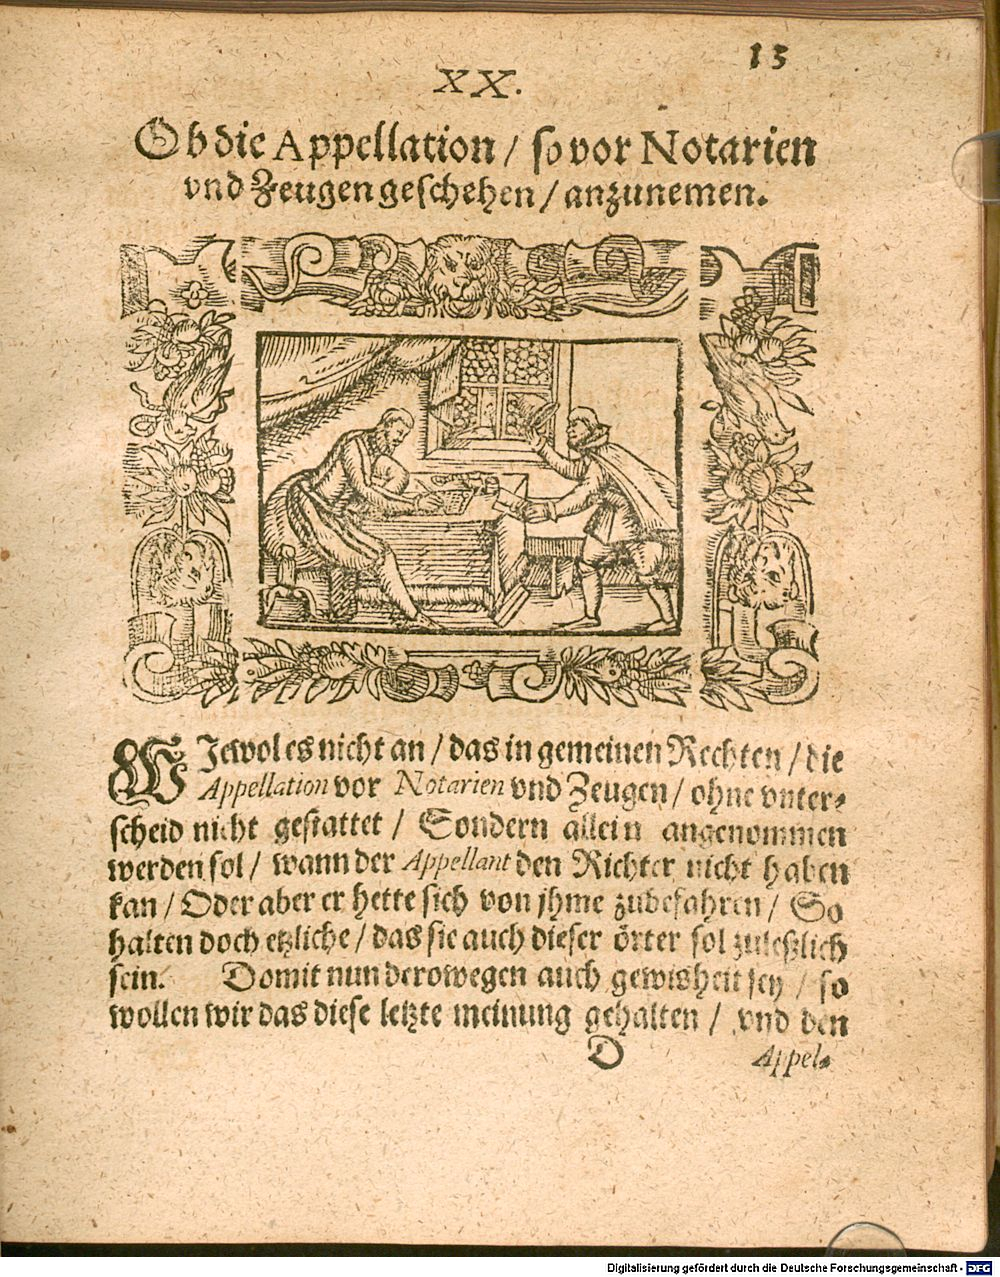 13
XX.
Ob die Appellation / so vor Notarien
vnd Zeugen geschehen / anzunemen.
WJewol es nicht an / das in gemeinen Rechten / die
Appellation vor Notarien vnd Zeugen / ohne vnter-
scheid nicht gestattet / Sondern allein angenommen
werden sol / wann der Appellant den Richter nicht haben
kan / Oder aber er hette sich von jhme zubefahren / So
halten doch etzliche / das sie auch dieser örter sol zuleßlich
sein. Domit nun derowegen auch gewisheit sey / so
wollen wir das diese letzte meinung gehalten / vnd den
D Appel-
Digitalisierung gefördert durch die Deutsche Forschungsgemeinschaft - DFG